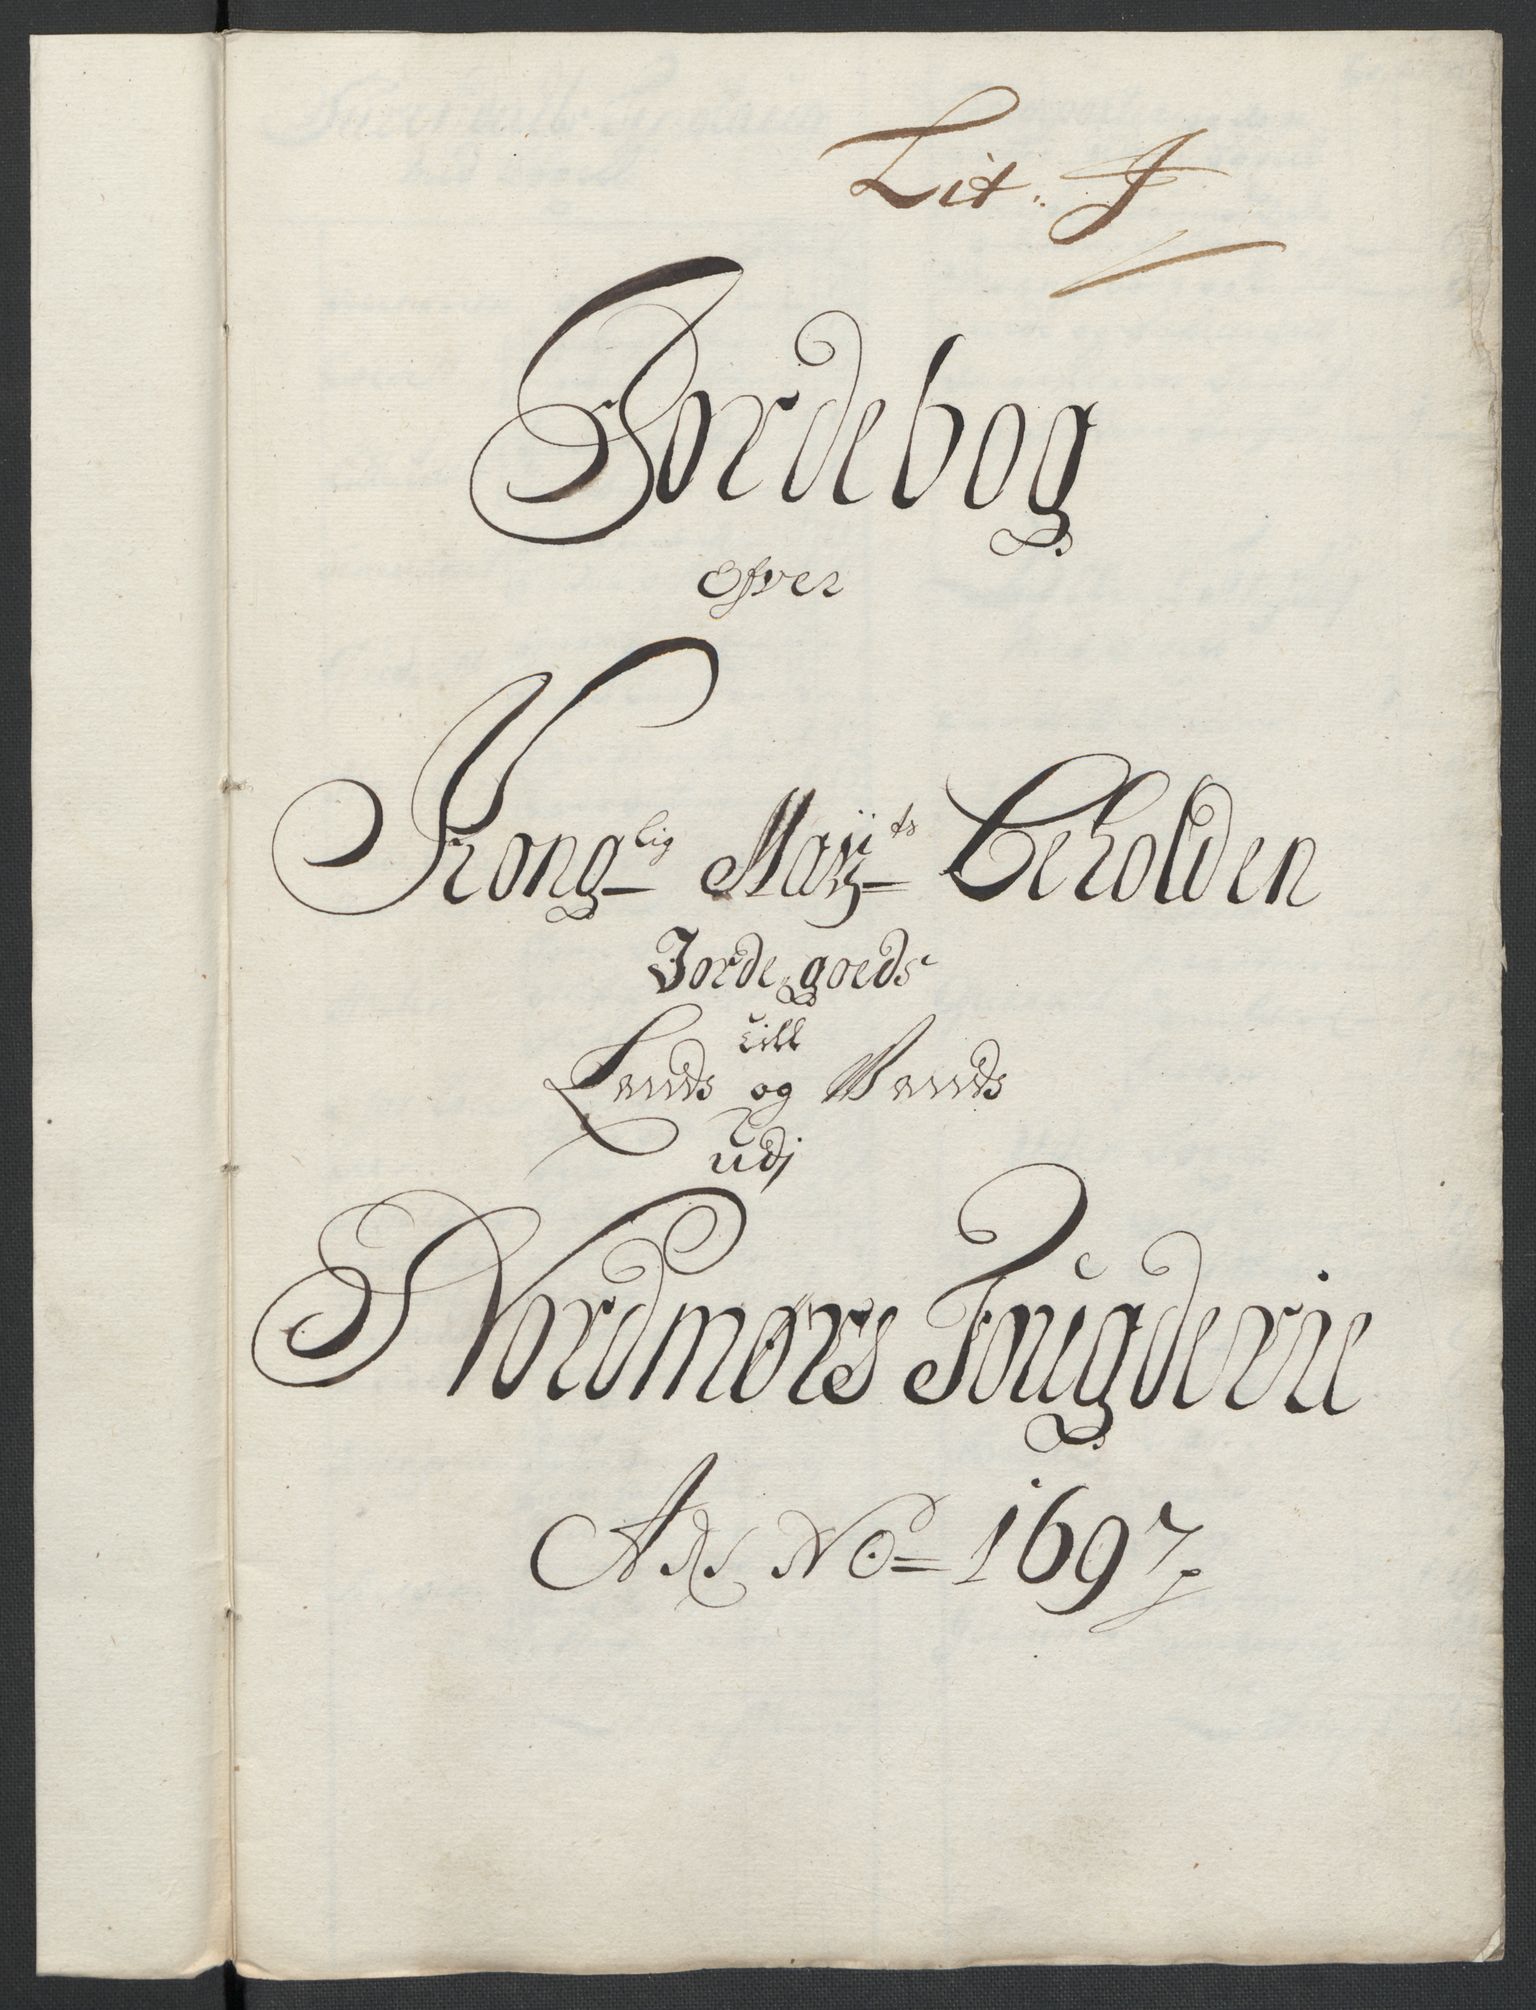 Lit: J
Jordebog
Ofver
Kong-lig May-ts beholden
Jorde goeds
till
Lands og Vands
udj
Nordmørs Fougderie
An No 1697